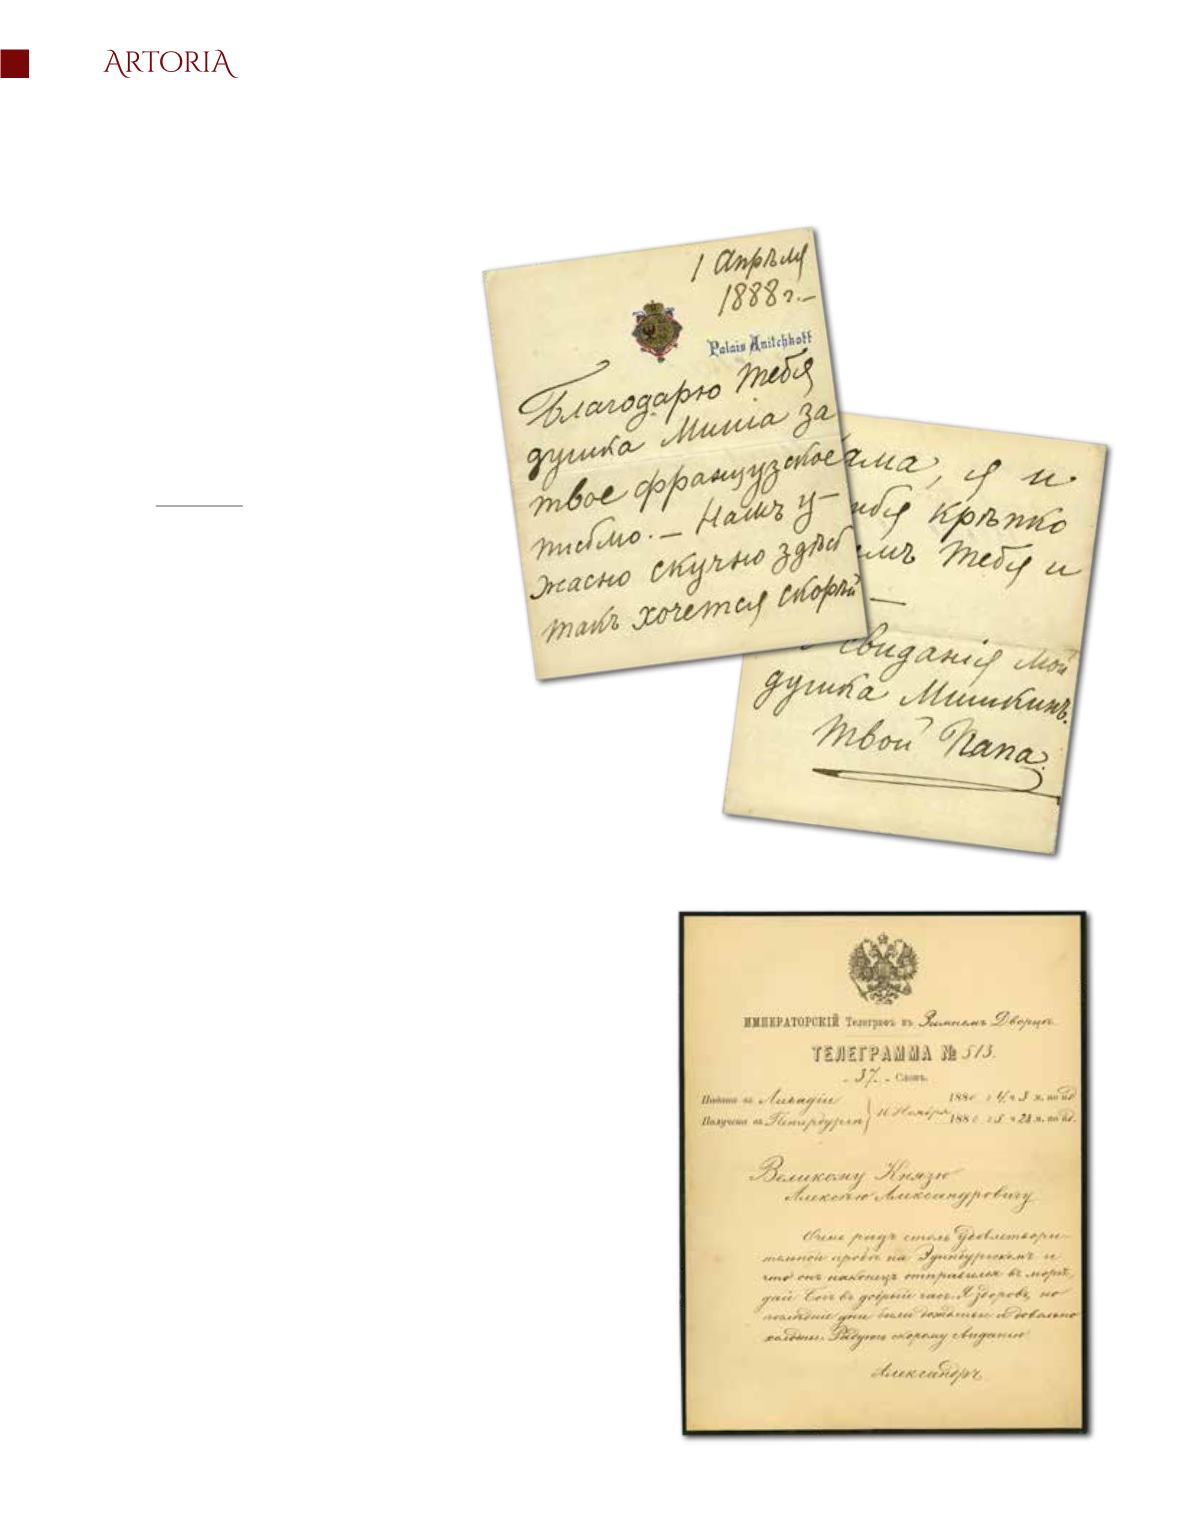 ARTORIA
1 Апрѣля
1888 г.–
Palais Anitchkoff
Благодарю тебя
душка Миша за
твое французское
письмо. – Намъ у–
жасно скучно здѣсь
такъ хочется скорѣй
ама, я и
ебя крѣпко
емъ тебя и
—
свиданія мой
душка Мишкинъ.
Твой Папа.
ИМПЕРАТОРСКІЙ Телеграфъ въ Зимнемъ Дворцѣ
ТЕЛЕГРАММА № 513.
- 37. - Словъ.
Подана въ Ливадіи 16 Ноября 1880 г. 4 ч 3 м. по пд
Получена въ Петербургѣ 1880 г. 5 ч 28 м. по пд.
Великому Князю
Алексѣю Александровичу
Очень радъ столь удовлетвори-
тельной пробѣ на Эдинбургскомъ и
что онъ наконецъ отправился въ море,
дай Богъ въ добрый часъ. Я здоровъ, но
послѣдніе дни были дождливые и довольно
холодны. Радуюсь скорому свиданію
Александръ